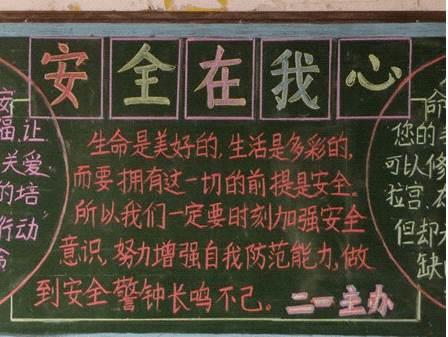 安全在我心
生命是美好的,生活是多彩的,
而要拥有这一切的前提是安全.
所以我们一定要时刻加强安全
意识,努力增强自我防范能力,做
到安全警钟长鸣不己。
二一主办
福,让
关爱
的培
行动
命
您的
可以修
拉宫,
但却
缺